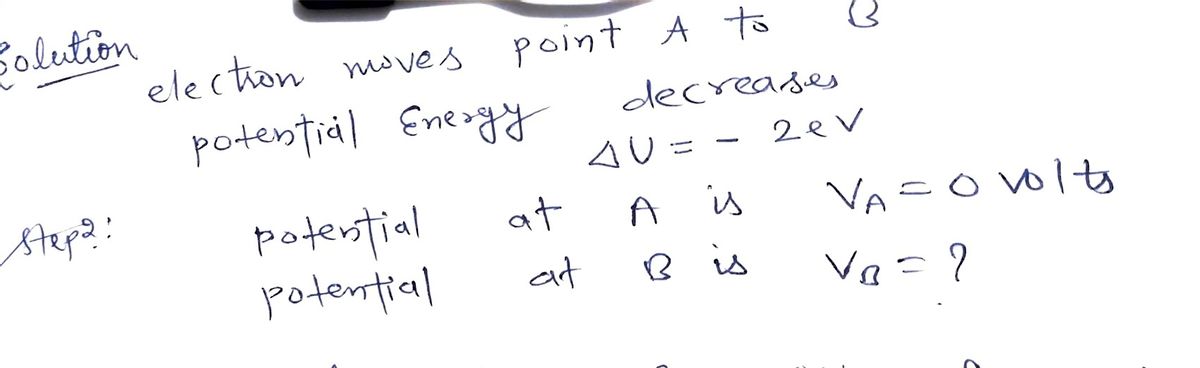 Solution
electron moves point A to B
potential Energy decreases
ΔU = - 2eV
Step2: potential at A is VA = 0 volts
potential at B is VB = ?